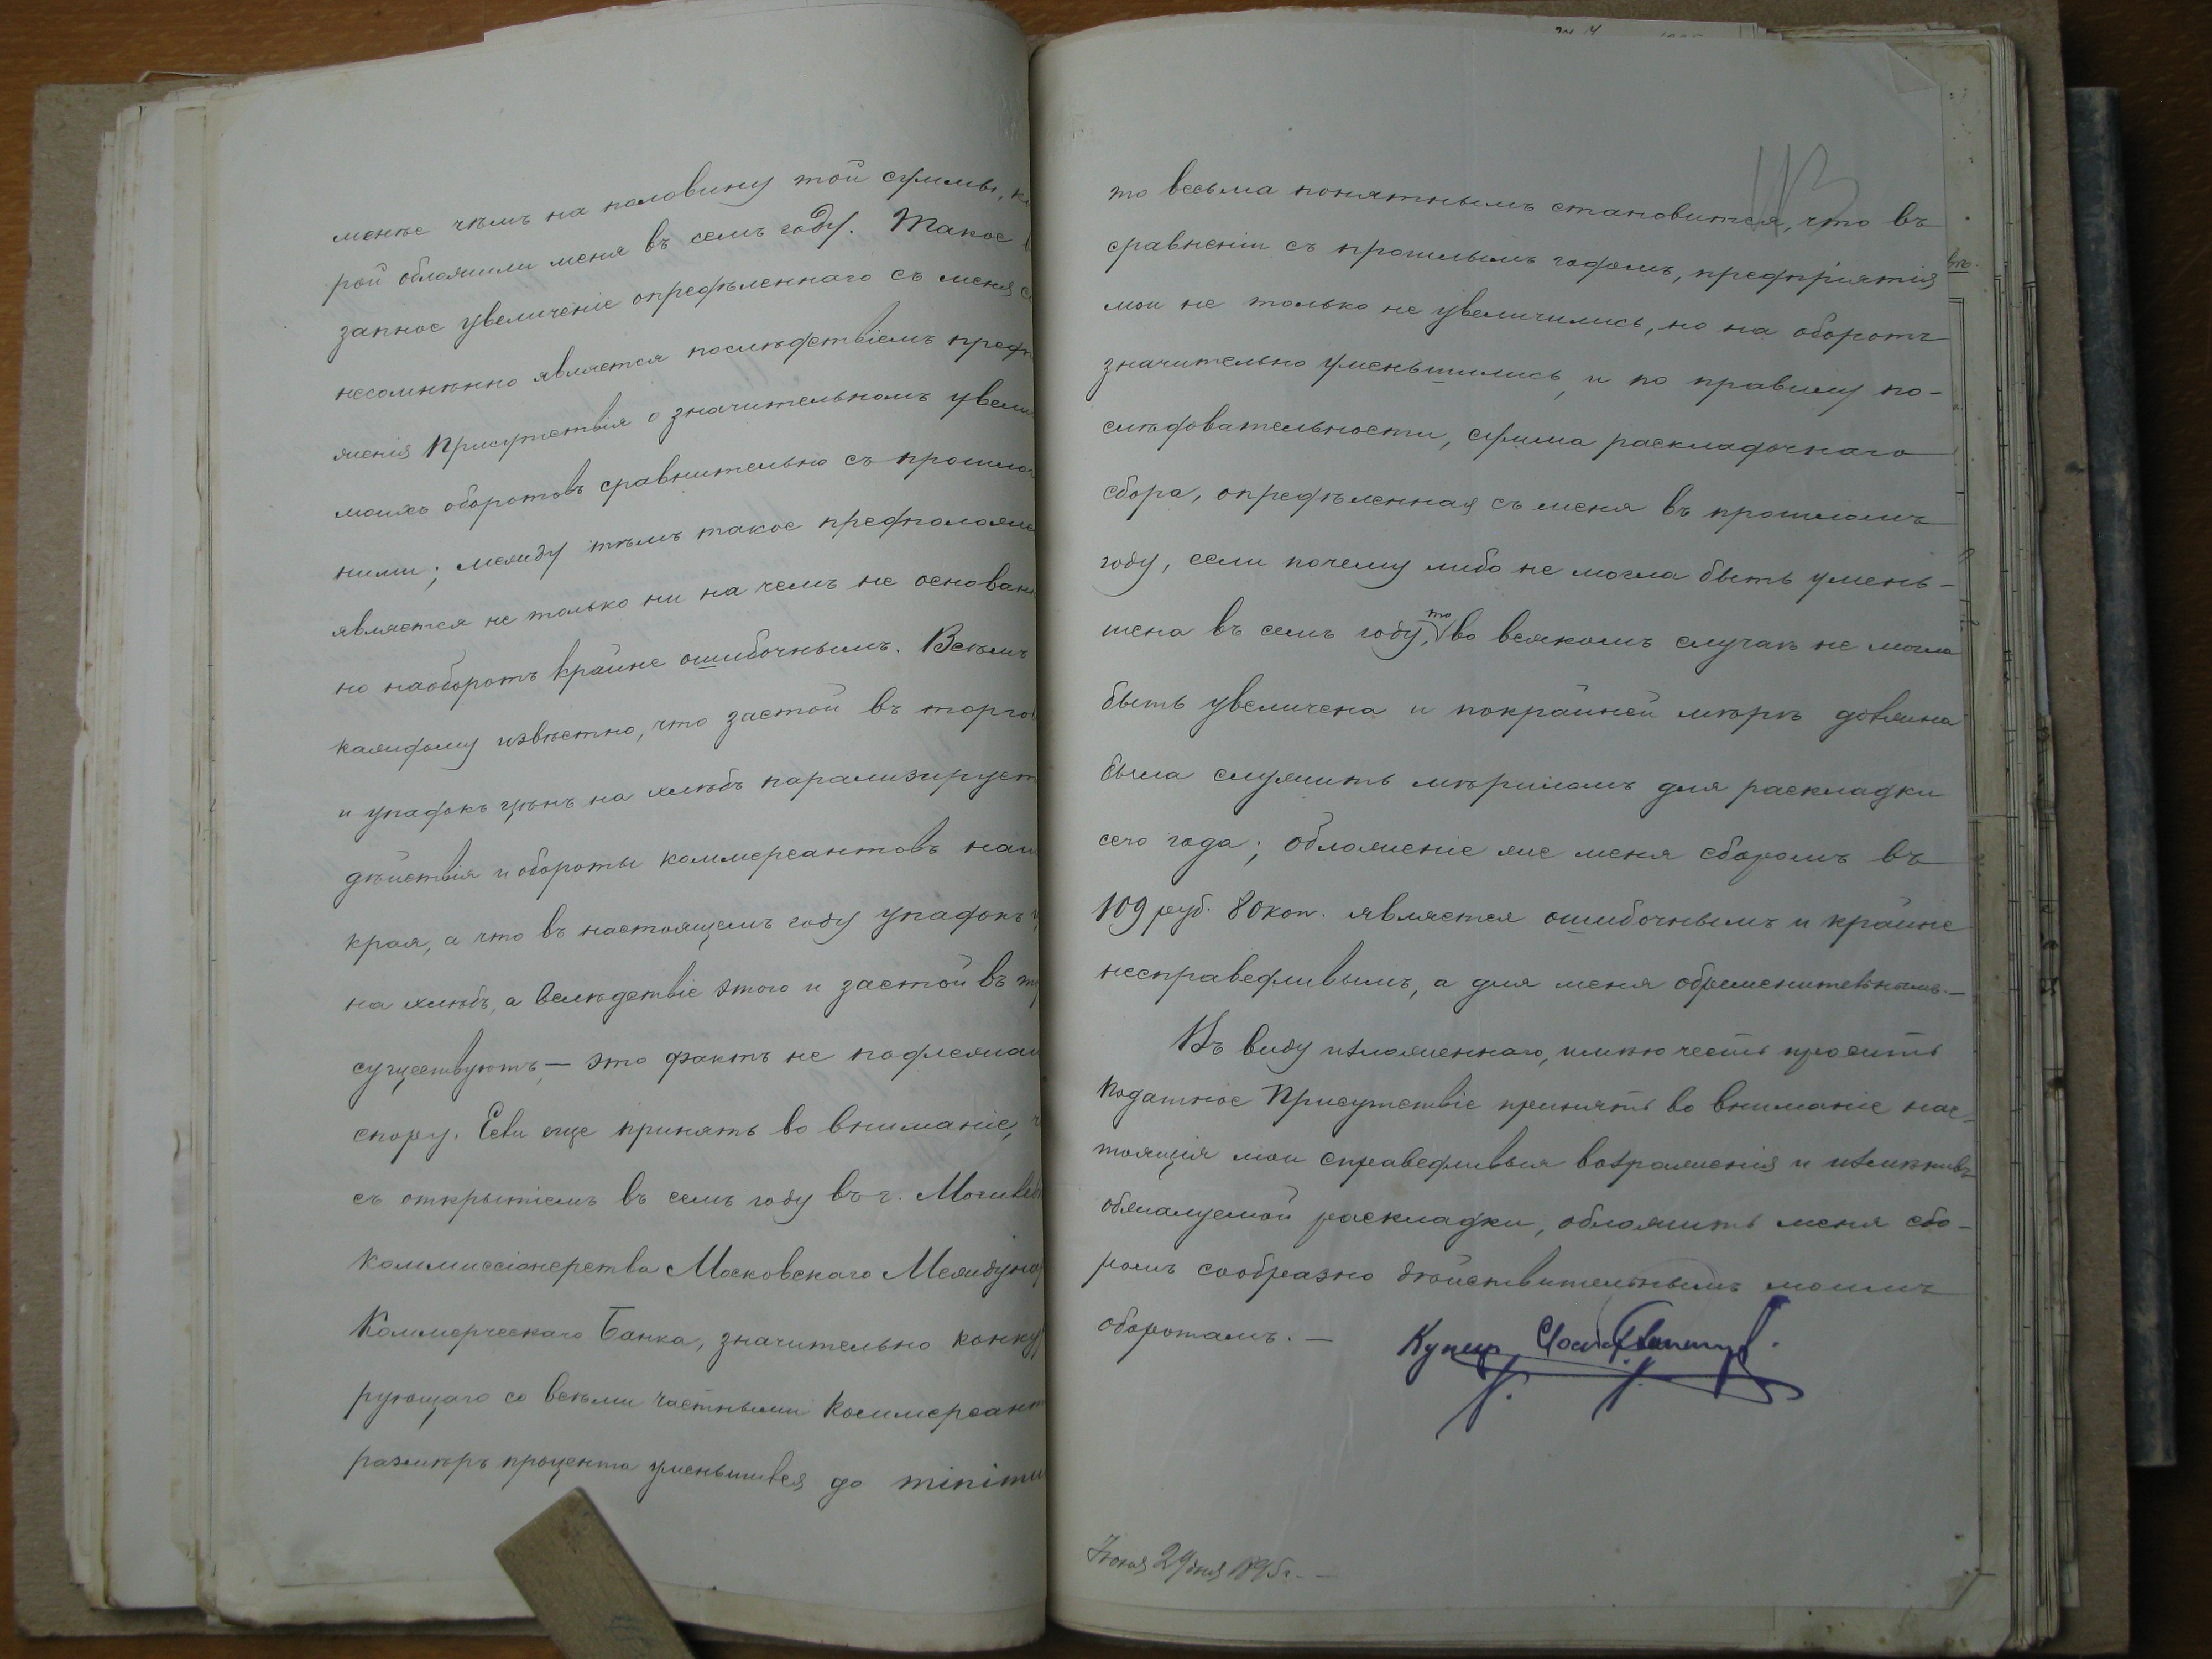 менѣе чѣмъ на половину той суммы, ко
рой обложили меня въ семъ году. Такое
запное увеличеніе опредѣленнаго съ меня
несомнѣнно является послѣдствіемъ предп
женія Присутствія о значительномъ увели
моихъ оборотовъ сравнительно съ прошло
ними; между тѣмъ такое предположе
является не только ни на чемъ не основан
но наоборотъ крайне ошибочнымъ. Всѣмъ
каждому извѣстно, что застой въ торго
и упадокъ цѣнъ на хлѣбъ парализирует
дѣйствія и обороты коммерсантовъ наш
края, а что въ настоящемъ году упадокъ
на хлѣбъ, а вслѣдствіе этого и застой въ то
существуютъ, — это фактъ не подлежащ
спору. Если еще принять во вниманіе,
съ открытіемъ въ семъ году въ г. Могилев
коммиссіонерства Московскаго Междунар
Коммерческаго Банка, значительно конку
рующаго со всѣми частными коммерсант
размѣръ процента уменьшился до minimu
113
то весьма понятнымъ становится, что въ
сравненіи съ прошлымъ годомъ, предпріятія
мои не только не увеличились, но на оборотъ
значительно уменьшились, и по правилу по-
слѣдовательности, сумма раскладочнаго
сбора, опредѣленная съ меня въ прошломъ
году, если почему либо не могла быть умень-
шена въ семъ году, то во всякомъ случаѣ не могла
быть увеличена и покрайней мѣрѣ должна
была служить мѣриломъ для раскладки
сего года; обложеніе же меня сборомъ въ
109 руб. 80 коп. является ошибочнымъ и крайне
несправедливымъ, а для меня обременительнымъ. —
Въ виду изложеннаго, имѣю честь просить
Податное Присутствіе принять во вниманіе нас-
тоящія мои справедливыя возраженія и измѣнивъ
обжалуемой раскладки, обложить меня сбо-
ромъ сообразно дѣйствительнымъ моимъ
оборотамъ. —
Купец
Іюня 29 дня 1895 г. —